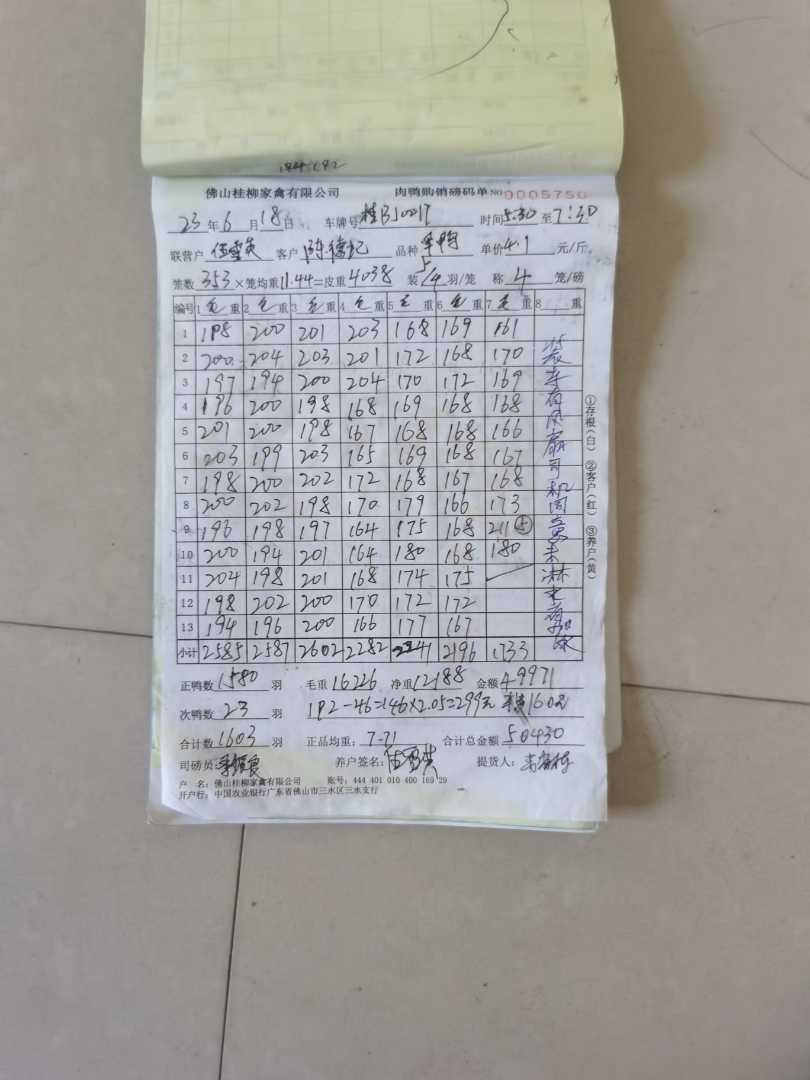 佛山桂柳家禽有限公司 肉鸭购销磅码单 NO 0005750
23年6月18日 车牌号 时间5:30至7:30
联营户 伍雪英 客户 陈德记 品种 单价4.1元/斤
笼数353×笼均重11.44=皮重4038 装5/4羽/笼 称4笼/磅
编号 1毛重 2毛重 3毛重 4毛重 5毛重 6毛重 7毛重 8 重
1 198 200 201 203 168 169 161
2 200 204 203 201 172 168 170
3 197 194 200 204 170 172 169
4 196 200 198 168 169 168 168
5 201 200 198 167 168 168 166
6 203 199 203 165 169 168 167
7 198 200 202 172 168 167 168
8 200 202 198 170 179 166 173
9 196 198 197 164 175 168 211⑤
10 200 194 201 164 180 168 180
11 204 198 201 168 174 175
12 198 202 200 170 172 172
13 194 196 200 166 177 167
小计 2585 2587 2602 2282 2241 2196 1733
①存根(白) ②客户(红) ③养户(黄)
正鸭数1580羽 毛重16226 净重12188 金额49971
次鸭数23羽 192-46=146×2.05=299元 160元
合计数1603羽 正品均重:7.71 合计总金额50430
司磅员 养户签名: 提货人:
户 名:佛山桂柳家禽有限公司 账号:444 401 010 400 169 29
开户行:中国农业银行广东省佛山市三水区三水支行